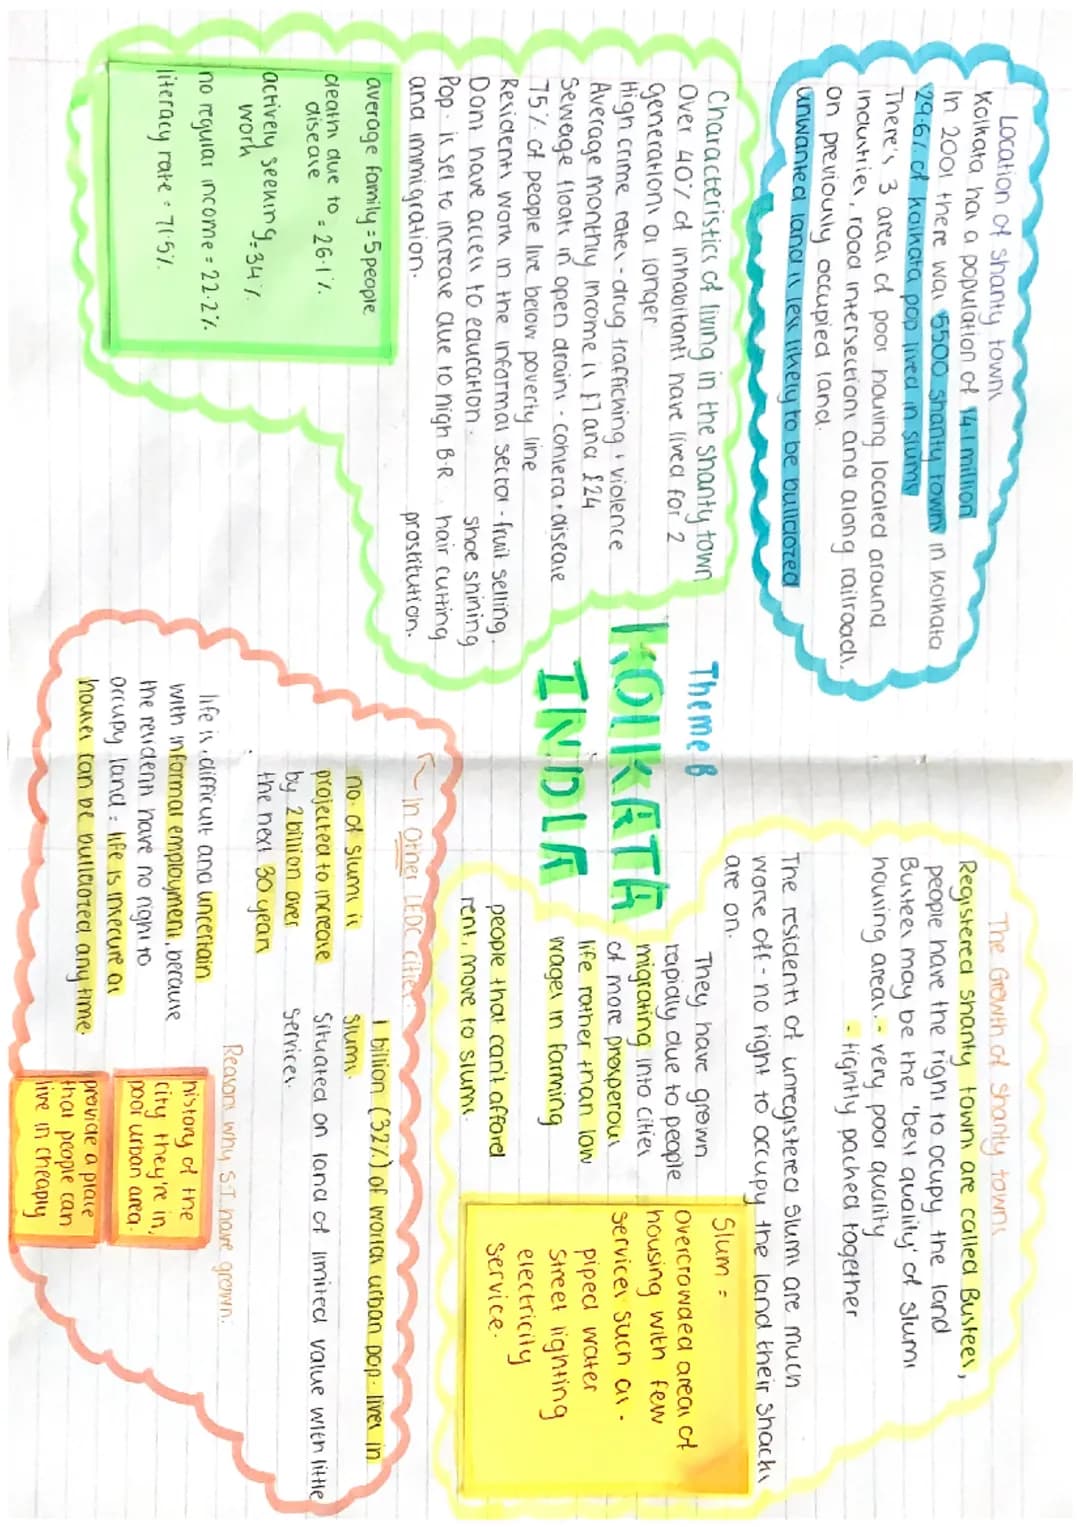 Theme 8
KOLKATA
INDIA
Location of shanty towns
Kolkata has a population of 14.1 million
In 2001 there was 5500 shanty towns in Kolkata
29.6% of kolkata pop lived in slums
There's 3 areas of poor housing located around
industries, road intersections and along railroads.
on previously occupied land.
unwanted land is less likely to be bulldozed
Characteristics of living in the shanty town
Over 40% of inhabitants have lived for 2
generations or longer
High crime rates - drug trafficking + violence
Average monthly income is £7 and £24
Sewage floats in open drains - cohlera + disease
75% of people live below poverty line
Residents work in the informal sector - fruit selling.
shoe shining
hair cutting
prostitution.
Dont have acless to education.
Pop. is set to increase due to high B.R
and immigration.
average family = 5 people
death due to = 26.1%
disease
actively seeking = 34%
work
no regular income = 22.2%
literacy rate = 71.5%
The Growth of Shanty towns
Registered shanty towns are called Bustees,
people have the right to ocupy the land
Bustees may be the 'best quality' of slums
housing areas. - very poor quality
- tightly packed together
The residents of unregistered slums are much
worse off - no right to occupy the land their shacks
are on.
They have grown
rapidly due to people
migrating into cities
of more prosperous
life rather than low
wages in farming
people that can't afford
rent, move to slums.
Slum =
overcrowded areas of
housing with few
services such as -
piped water
street lighting
electricity
service.
In Other LEDC cities:
no. of slums is
projected to increase
by 2 billion over
the next 30 year
1 billion (32%) of worlds urban pop. lives in
slums.
Situated on land of limited value with little
services.
life is difficult and uncertain
with informal employment, because
the residents have no right to
occupy land = life is insecure as
houses can be bulldozed any time.
Reasons why S.T have grown:
history of the
city they're in,
poor urban area.
provide a place
that people can
live in cheaply